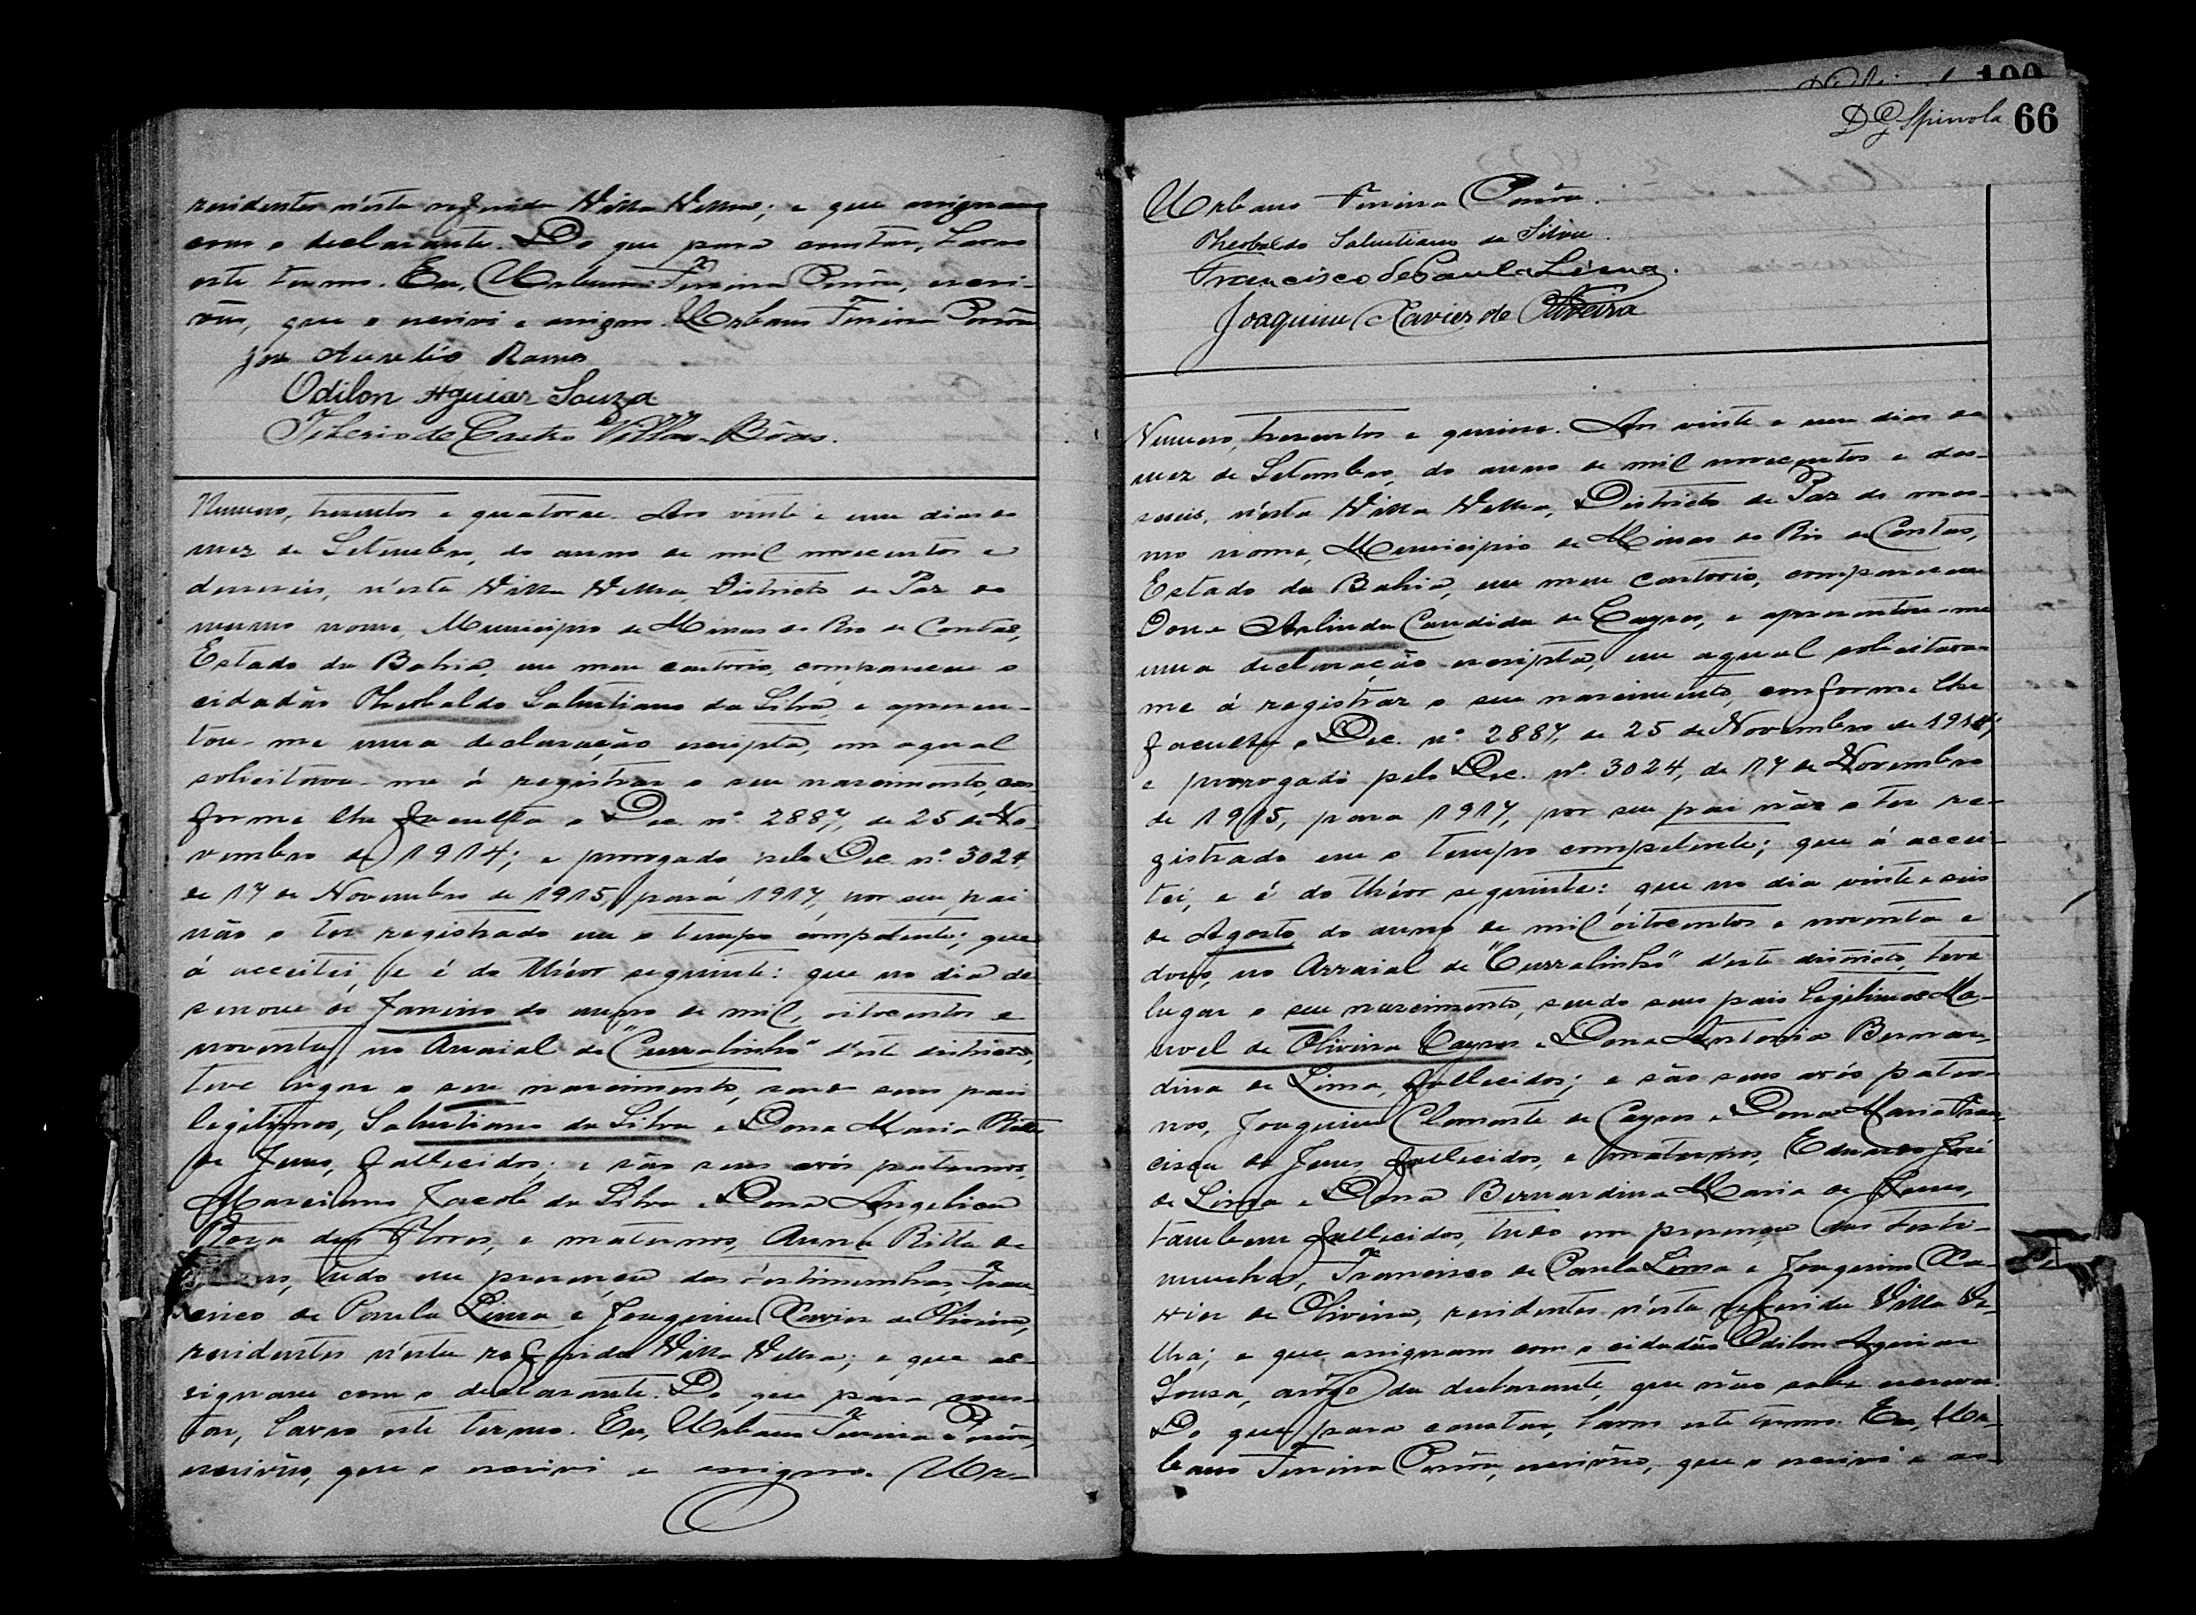 residentes n'esta referida Villa Velha; e que assignam
com o declarante. Do que para constar, lavro
este termo. Eu, Urbano Ferreira Porrão, escri-
vão, que o escrivi e assigno. Urbano Ferreira Porrão
José Aurelio Ramos
Odilon Aguiar Souza
Tiberio de Castro Villas-Bôas.
Numero, trezentos e quatorze. Aos vinte e um dias do
mez de Setembro, do anno de mil novecentos e
dezeseis, n'esta Villa Velha, Districto de Paz do
mesmo nome, Municipio de Minas do Rio de Contas,
Estado da Bahia, em meu cartorio, compareceu o
cidadão Theobaldo Salustiano da Silva, e apresen-
tou-me uma declaração escripta, em a qual
solicitava-me á registrar o seu nascimento, con-
forme lhe faculta o Dec. nº 2887, de 25 de No-
vembro de 1914; e prorogado pelo Dec. nº 3024
de 17 de Novembro de 1915, para 1917, por seu pai
não o ter registrado em o tempo competente; que
á acceitei, e é do théor seguinte: que no dia de-
senove de Janeiro do anno de mil, oitocentos e
noventa, no Arraial de "Curralinho" d'este districto,
teve lugar o seu nascimento, sendo seus pais
legitimos, Salustiano da Silva e Dona Maria Ritta
de Jesus, fallecidos; e são seus avós paternos,
Marciano Jacob da Silva e Dona Angelica
Roza das Flores, e maternos, Anna Ritta de
tudo em presença das testimunhas, Fran-
cisco de Paula Lima e Joaquim Xavier de Oliveira,
residentes n'esta referida Villa Velha; e que as-
signam com o declarante. Do que para cons-
tar, lavro este termo. Eu, Urbano Ferreira Porrão,
escrivão, que o escrivi e assigno. Ur-
D G Spinola 66
Urbano Ferreira Porrão.
Theobaldo Salustiano da Silva.
Francisco de Paula Lima.
Joaquim Xavier de Oliveira
Numero, trezentos e quinse. Aos vinte e um dias do
mez de Setembro, do anno de mil novecentos e des-
eseis, n'esta Villa Velha, Districto de Paz do mes-
mo nome, Municipio de Minas do Rio de Contas,
Estado da Bahia, em meu cartorio, compareceu
Dona Arlinda Candida de Cayres, e apresentou-me
uma declaração escripta, em a qual solicitava-
me á registrar o seu nascimento, conforme lhe
faculta o Dec. nº 2887, de 25 de Novembro de 1914;
e prorogado pelo Dec. nº 3024, de 17 de Novembro
de 1915, para 1917, por seu pai não o ter re-
gistrado em o tempo competente; que á accei-
tei, e é do théor seguinte: que no dia vinte e seis
de Agosto do anno de mil oitocentos e noventa e
dous, no Arraial de "Curralinho" d'este districto, teve
lugar o seu nascimento, sendo seus pais legitimos Ma-
noel de Oliveira Cayres e Dona Antonia Bernar-
dina de Lima, fallecidos; e são seus avós pater-
nos, Joaquim Clemente de Cayres e Dona Maria Fran-
cisca de Jesus, fallecidos, e maternos, Eduardo José
de Lima e Dona Bernardina Maria de Jesus,
tambem fallecidos, tudo em presença das testi-
munhas, Francisco de Paula Lima e Joaquim Xa-
vier de Oliveira, residentes n'esta referida Villa Ve-
lha; e que assignam com o cidadão Odilon Aguiar
Souza, arôgo da declarante, que não sabe escrever.
Do que para constar, lavro este termo. Eu, Ur-
bano Ferreira Porrão, escrivão, que o escrivi e as-